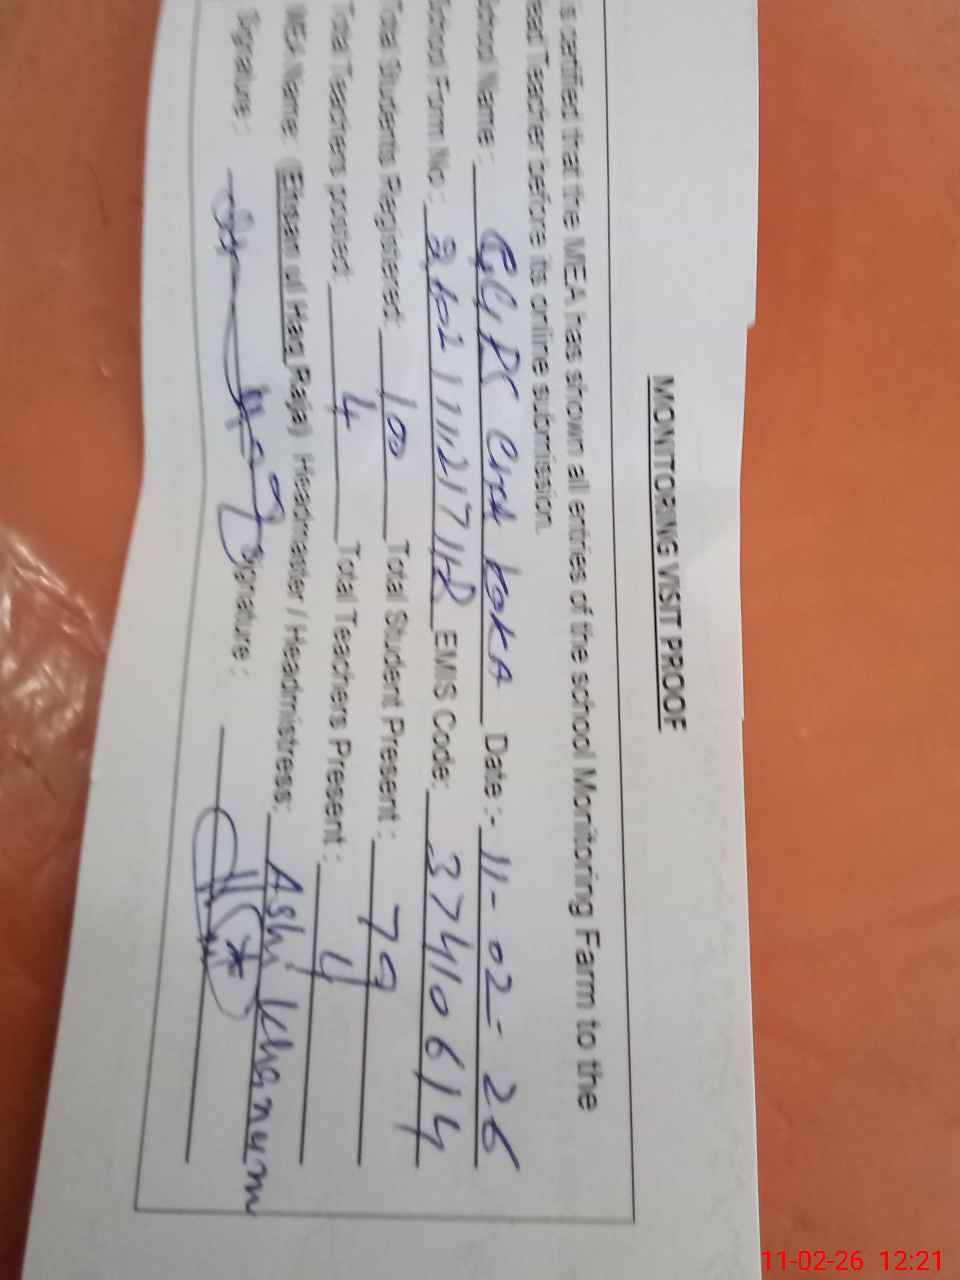 MONITORING VISIT PROOF
is certified that the MEA has shown all entries of the school Monitoring Farm to the
ead Teacher before its online submission.
School Name : Date :- 11-02-26
School Form No : EMIS Code: 37410614
Total Students Registered: 100 Total Student Present : 79
Total Teachers posted: 4 Total Teachers Present : 4
MEA Name: (Ehsan ul Haq Raja) Headmaster / Headmistress: Ashi Khanum
Signature : Signature :
11-02-26 12:21